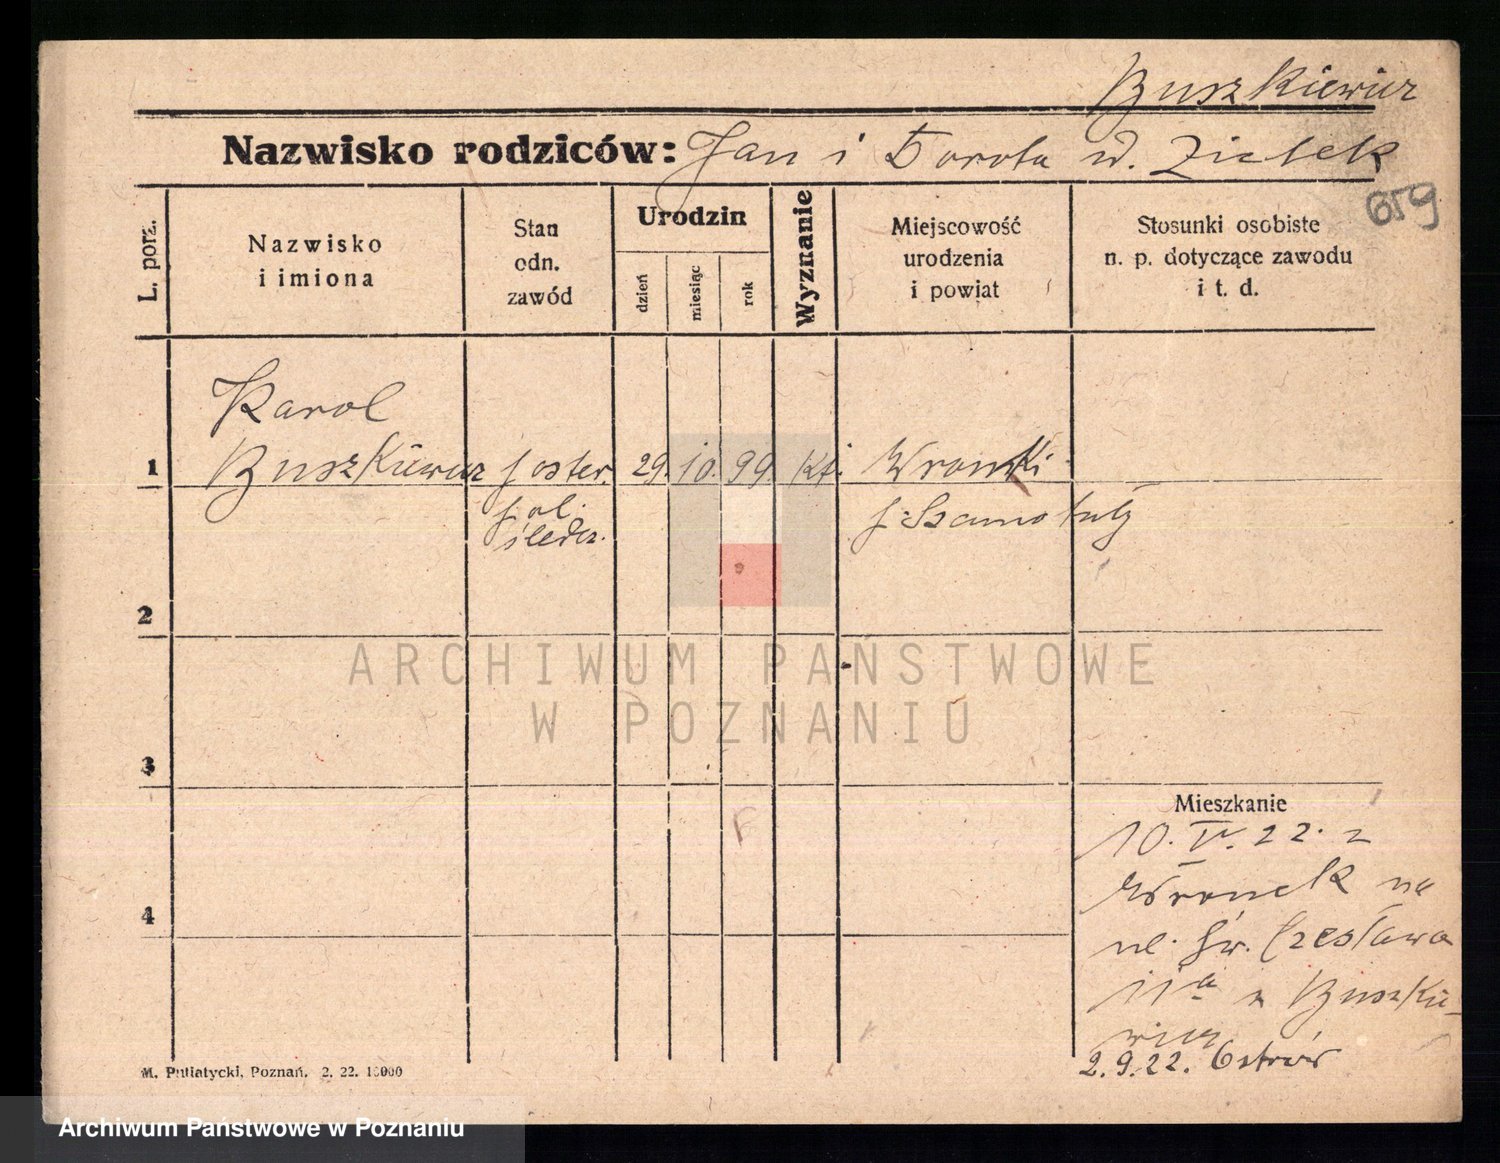 Buszkiewicz
Nazwisko rodziców: Jan i Dorota d. Ziętek
659
L. porz.
Nazwisko
i imiona
Stan
odn.
zawód
Urodzin
dzień
miesiąc
rok
Wyznanie
Miejscowość
urodzenia
i powiat
Stosunki osobiste
n. p. dotyczące zawodu
i t. d.
Karol
1 Buszkiewicz poster. 29. 10. 99. kt. Wronki
pol. p. Szamotuły
śledcz.
2
ARCHIWUM PAŃSTWOWE
W POZNANIU
3
Mieszkanie
10. IV. 22. z
Wronek na
ul. Św. Czesława
11a u Buszkie-
wicz
2.9.22. Ostrów
4
M. Putiatycki, Poznań. 2. 22. 10000
Archiwum Państwowe w Poznaniu